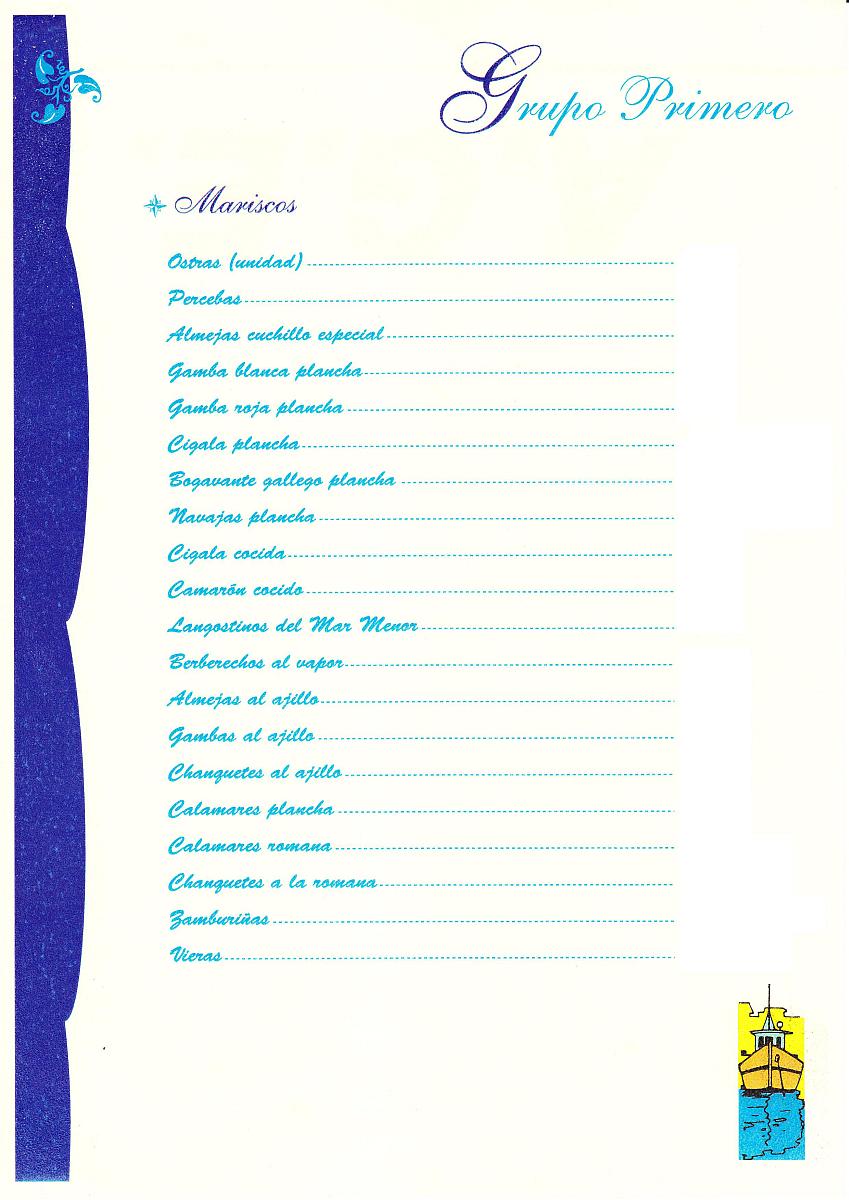 Grupo Primero
Mariscos
Ostras (unidad)
Percebas
Almejas cuchillo especial
Gamba blanca plancha
Gamba roja plancha
Cigala plancha
Bogavante gallego plancha
Navajas plancha
Cigala cocida
Camarón cocido
Langostinos del Mar Menor
Berberechos al vapor
Almejas al ajillo
Gambas al ajillo
Chanquetes al ajillo
Calamares plancha
Calamares romana
Chanquetes a la romana
Zamburiñas
Vieras